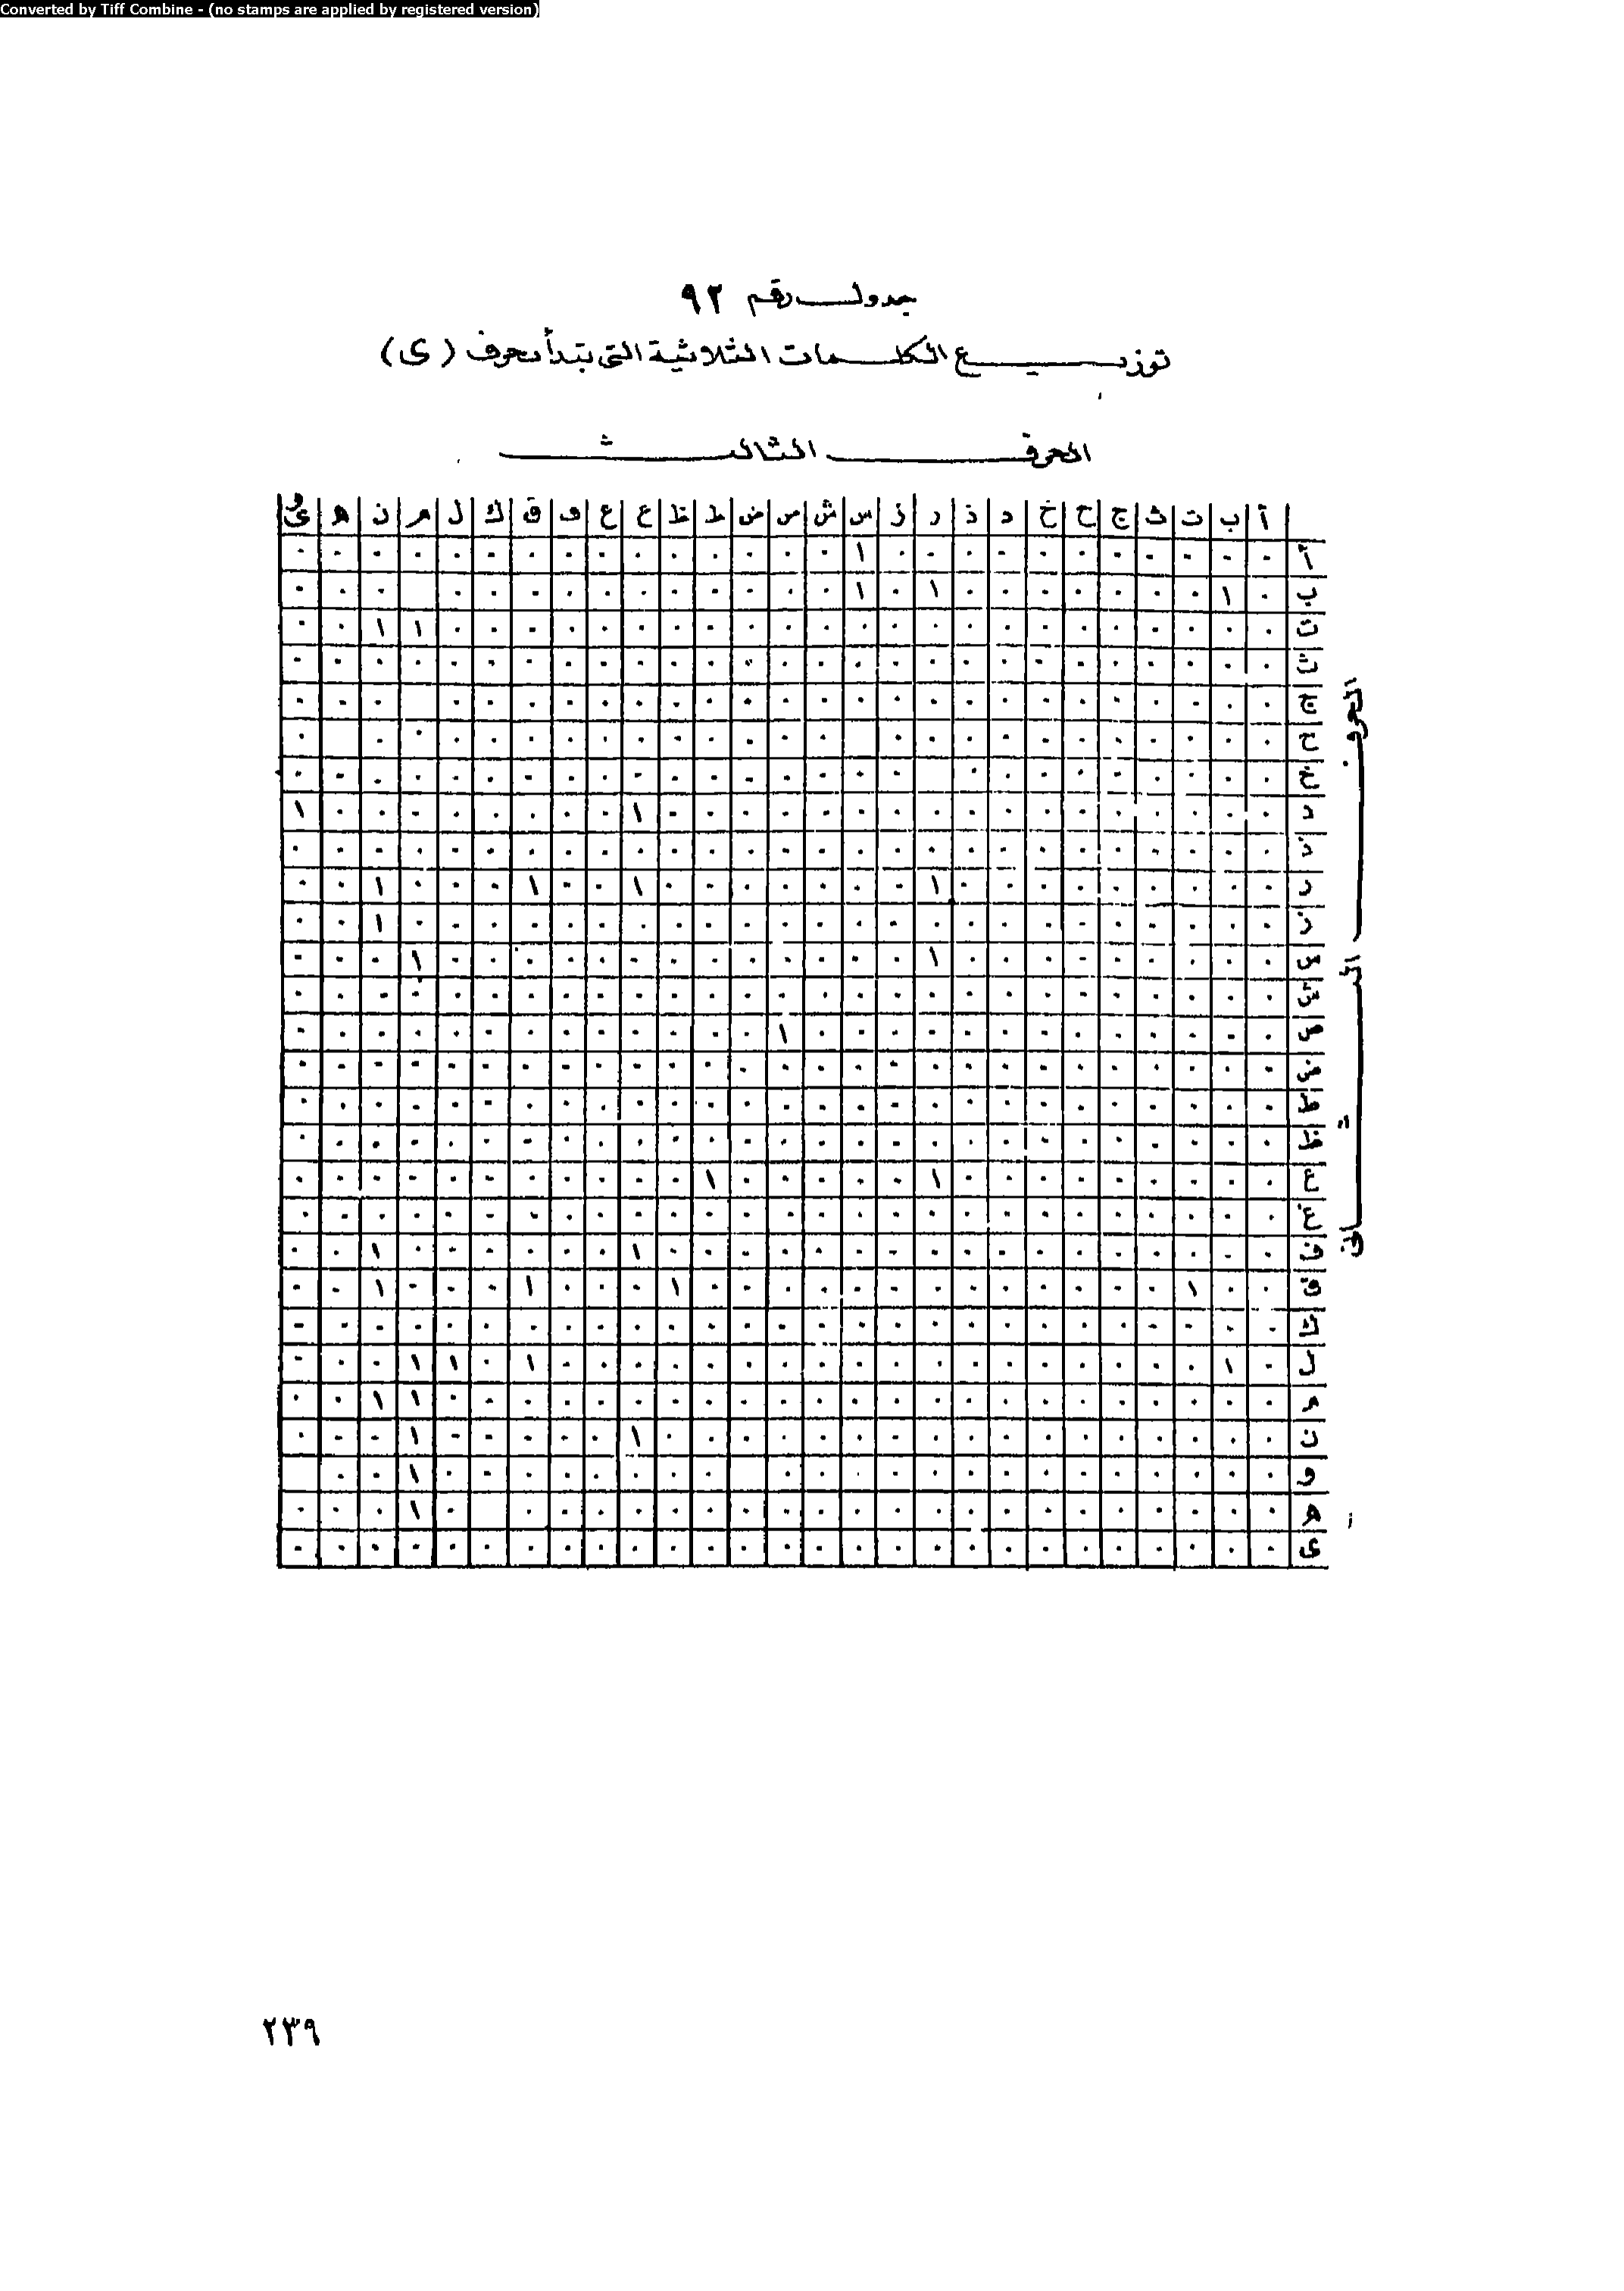 Converted by Tiff Combine - (no stamps are applied by registered version)
جدول رقم ٩٢
توزيع الكلمات الثلاثية التى تبدأ بحرف (ى)
الحرف الثالث
أ ب ت ث ج ح خ د ذ ر ز س ش ص ض ط ظ ع غ ف ق ك ل م ن ه وى
الحرف الثانى
أ ٠ ٠ ٠ ٠ ٠ ٠ ٠ ٠ ٠ ٠ ٠ ١ ٠ ٠ ٠ ٠ ٠ ٠ ٠ ٠ ٠ ٠ ٠ ٠ ٠ ٠ ٠
ب ٠ ١ ٠ ٠ ٠ ٠ ٠ ٠ ٠ ١ ٠ ١ ٠ ٠ ٠ ٠ ٠ ٠ ٠ ٠ ٠ ٠ ٠ ٠ ٠ ٠
ت ٠ ٠ ٠ ٠ ٠ ٠ ٠ ٠ ٠ ٠ ٠ ٠ ٠ ٠ ٠ ٠ ٠ ٠ ٠ ٠ ٠ ٠ ٠ ١ ١ ٠ ٠
ث ٠ ٠ ٠ ٠ ٠ ٠ ٠ ٠ ٠ ٠ ٠ ٠ ٠ ٠ ٠ ٠ ٠ ٠ ٠ ٠ ٠ ٠ ٠ ٠ ٠ ٠ ٠
ج ٠ ٠ ٠ ٠ ٠ ٠ ٠ ٠ ٠ ٠ ٠ ٠ ٠ ٠ ٠ ٠ ٠ ٠ ٠ ٠ ٠ ٠ ٠ ٠ ٠ ٠
ح ٠ ٠ ٠ ٠ ٠ ٠ ٠ ٠ ٠ ٠ ٠ ٠ ٠ ٠ ٠ ٠ ٠ ٠ ٠ ٠ ٠ ٠ ٠ ٠ ٠
خ ٠ ٠ ٠ ٠ ٠ ٠ ٠ ٠ ٠ ٠ ٠ ٠ ٠ ٠ ٠ ٠ ٠ ٠ ٠ ٠ ٠ ٠ ٠ ٠ ٠ ٠
د ٠ ٠ ٠ ٠ ٠ ٠ ٠ ٠ ٠ ٠ ٠ ٠ ٠ ٠ ٠ ٠ ٠ ١ ٠ ٠ ٠ ٠ ٠ ٠ ٠ ٠ ١
ذ ٠ ٠ ٠ ٠ ٠ ٠ ٠ ٠ ٠ ٠ ٠ ٠ ٠ ٠ ٠ ٠ ٠ ٠ ٠ ٠ ٠ ٠ ٠ ٠ ٠ ٠ ٠
ر ٠ ٠ ٠ ٠ ٠ ٠ ٠ ٠ ٠ ١ ٠ ٠ ٠ ٠ ٠ ٠ ٠ ١ ٠ ٠ ١ ٠ ٠ ٠ ١ ٠ ٠
ز ٠ ٠ ٠ ٠ ٠ ٠ ٠ ٠ ٠ ٠ ٠ ٠ ٠ ٠ ٠ ٠ ٠ ٠ ٠ ٠ ٠ ٠ ٠ ٠ ١ ٠ ٠
س ٠ ٠ ٠ ٠ ٠ ٠ ٠ ٠ ٠ ١ ٠ ٠ ٠ ٠ ٠ ٠ ٠ ٠ ٠ ٠ ٠ ٠ ٠ ١ ٠ ٠ ٠
ش ٠ ٠ ٠ ٠ ٠ ٠ ٠ ٠ ٠ ٠ ٠ ٠ ٠ ٠ ٠ ٠ ٠ ٠ ٠ ٠ ٠ ٠ ٠ ٠ ٠ ٠ ٠
ص ٠ ٠ ٠ ٠ ٠ ٠ ٠ ٠ ٠ ٠ ٠ ٠ ٠ ١ ٠ ٠ ٠ ٠ ٠ ٠ ٠ ٠ ٠ ٠ ٠ ٠ ٠
ض ٠ ٠ ٠ ٠ ٠ ٠ ٠ ٠ ٠ ٠ ٠ ٠ ٠ ٠ ٠ ٠ ٠ ٠ ٠ ٠ ٠ ٠ ٠ ٠ ٠ ٠ ٠
ط ٠ ٠ ٠ ٠ ٠ ٠ ٠ ٠ ٠ ٠ ٠ ٠ ٠ ٠ ٠ ٠ ٠ ٠ ٠ ٠ ٠ ٠ ٠ ٠ ٠ ٠ ٠
ظ ٠ ٠ ٠ ٠ ٠ ٠ ٠ ٠ ٠ ٠ ٠ ٠ ٠ ٠ ٠ ٠ ٠ ٠ ٠ ٠ ٠ ٠ ٠ ٠ ٠ ٠ ٠
ع ٠ ٠ ٠ ٠ ٠ ٠ ٠ ٠ ٠ ١ ٠ ٠ ٠ ٠ ٠ ١ ٠ ٠ ٠ ٠ ٠ ٠ ٠ ٠ ٠ ٠ ٠
غ ٠ ٠ ٠ ٠ ٠ ٠ ٠ ٠ ٠ ٠ ٠ ٠ ٠ ٠ ٠ ٠ ٠ ٠ ٠ ٠ ٠ ٠ ٠ ٠ ٠ ٠ ٠
ف ٠ ٠ ٠ ٠ ٠ ٠ ٠ ٠ ٠ ٠ ٠ ٠ ٠ ٠ ٠ ٠ ٠ ١ ٠ ٠ ٠ ٠ ٠ ٠ ١ ٠ ٠
ق ٠ ٠ ١ ٠ ٠ ٠ ٠ ٠ ٠ ٠ ٠ ٠ ٠ ٠ ٠ ٠ ١ ٠ ٠ ٠ ١ ٠ ٠ ٠ ١ ٠ ٠
ك ٠ ٠ ٠ ٠ ٠ ٠ ٠ ٠ ٠ ٠ ٠ ٠ ٠ ٠ ٠ ٠ ٠ ٠ ٠ ٠ ٠ ٠ ٠ ٠ ٠ ٠ ٠
ل ٠ ١ ٠ ٠ ٠ ٠ ٠ ٠ ٠ ٠ ٠ ٠ ٠ ٠ ٠ ٠ ٠ ٠ ٠ ٠ ١ ٠ ١ ١ ٠ ٠ ٠
م ٠ ٠ ٠ ٠ ٠ ٠ ٠ ٠ ٠ ٠ ٠ ٠ ٠ ٠ ٠ ٠ ٠ ٠ ٠ ٠ ٠ ٠ ٠ ١ ١ ٠ ٠
ن ٠ ٠ ٠ ٠ ٠ ٠ ٠ ٠ ٠ ٠ ٠ ٠ ٠ ٠ ٠ ٠ ٠ ١ ٠ ٠ ٠ ٠ ٠ ١ ٠ ٠ ٠
و ٠ ٠ ٠ ٠ ٠ ٠ ٠ ٠ ٠ ٠ ٠ ٠ ٠ ٠ ٠ ٠ ٠ ٠ ٠ ٠ ٠ ٠ ١ ٠ ٠
ه ٠ ٠ ٠ ٠ ٠ ٠ ٠ ٠ ٠ ٠ ٠ ٠ ٠ ٠ ٠ ٠ ٠ ٠ ٠ ٠ ٠ ٠ ١ ٠ ٠ ٠
ى ٠ ٠ ٠ ٠ ٠ ٠ ٠ ٠ ٠ ٠ ٠ ٠ ٠ ٠ ٠ ٠ ٠ ٠ ٠ ٠ ٠ ٠ ٠ ٠ ٠ ٠ ٠
٢٣٩